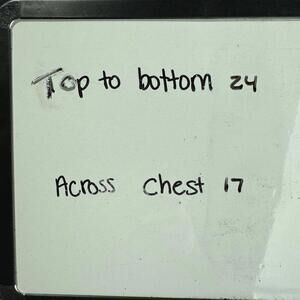 Top to bottom 24
Across Chest 17